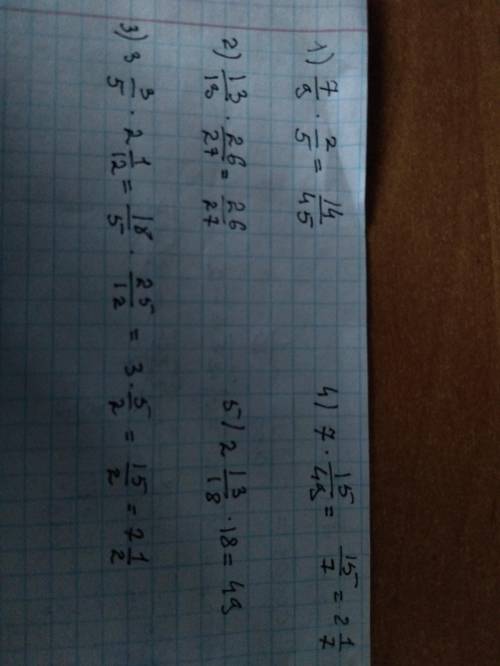 1) 7/9 · 2/5 = 14/45
2) 13/13 · 26/27 = 26/27
3) 3 3/5 · 2 1/12 = 18/5 · 25/12 = 3 · 5/2 = 15/2 = 7 1/2
4) 7 · 15/49 = 15/7 = 2 1/7
5) 2 13/18 · 18 = 49